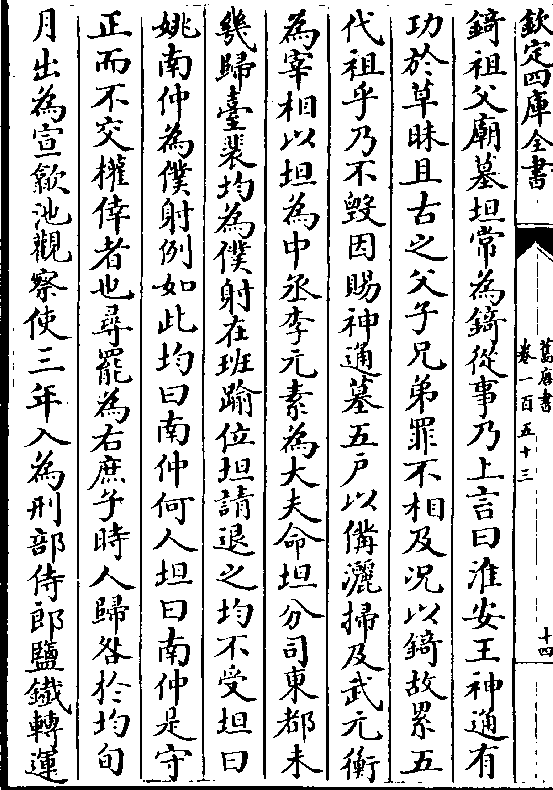 欽定四庫全書
舊唐書
卷一百五十三
十四
錡祖父廟墓坦常為錡從事乃上言曰淮安王神通有
功於草昧且古之父子兄弟罪不相及况以錡故累五
代祖乎乃不毀因賜神通墓五戶以備灑掃及武元衡
為宰相以坦為中丞李元素為大夫命坦分司東都未
幾歸臺裴均為僕射在班踰位坦請退之均不受坦曰
姚南仲為僕射例如此均曰南仲何人坦曰南仲是守
正而不交權倖者也尋罷為右庶子時人歸咎於均旬
月出為宣歙池觀察使三年入為刑部侍郎鹽鐵轉運